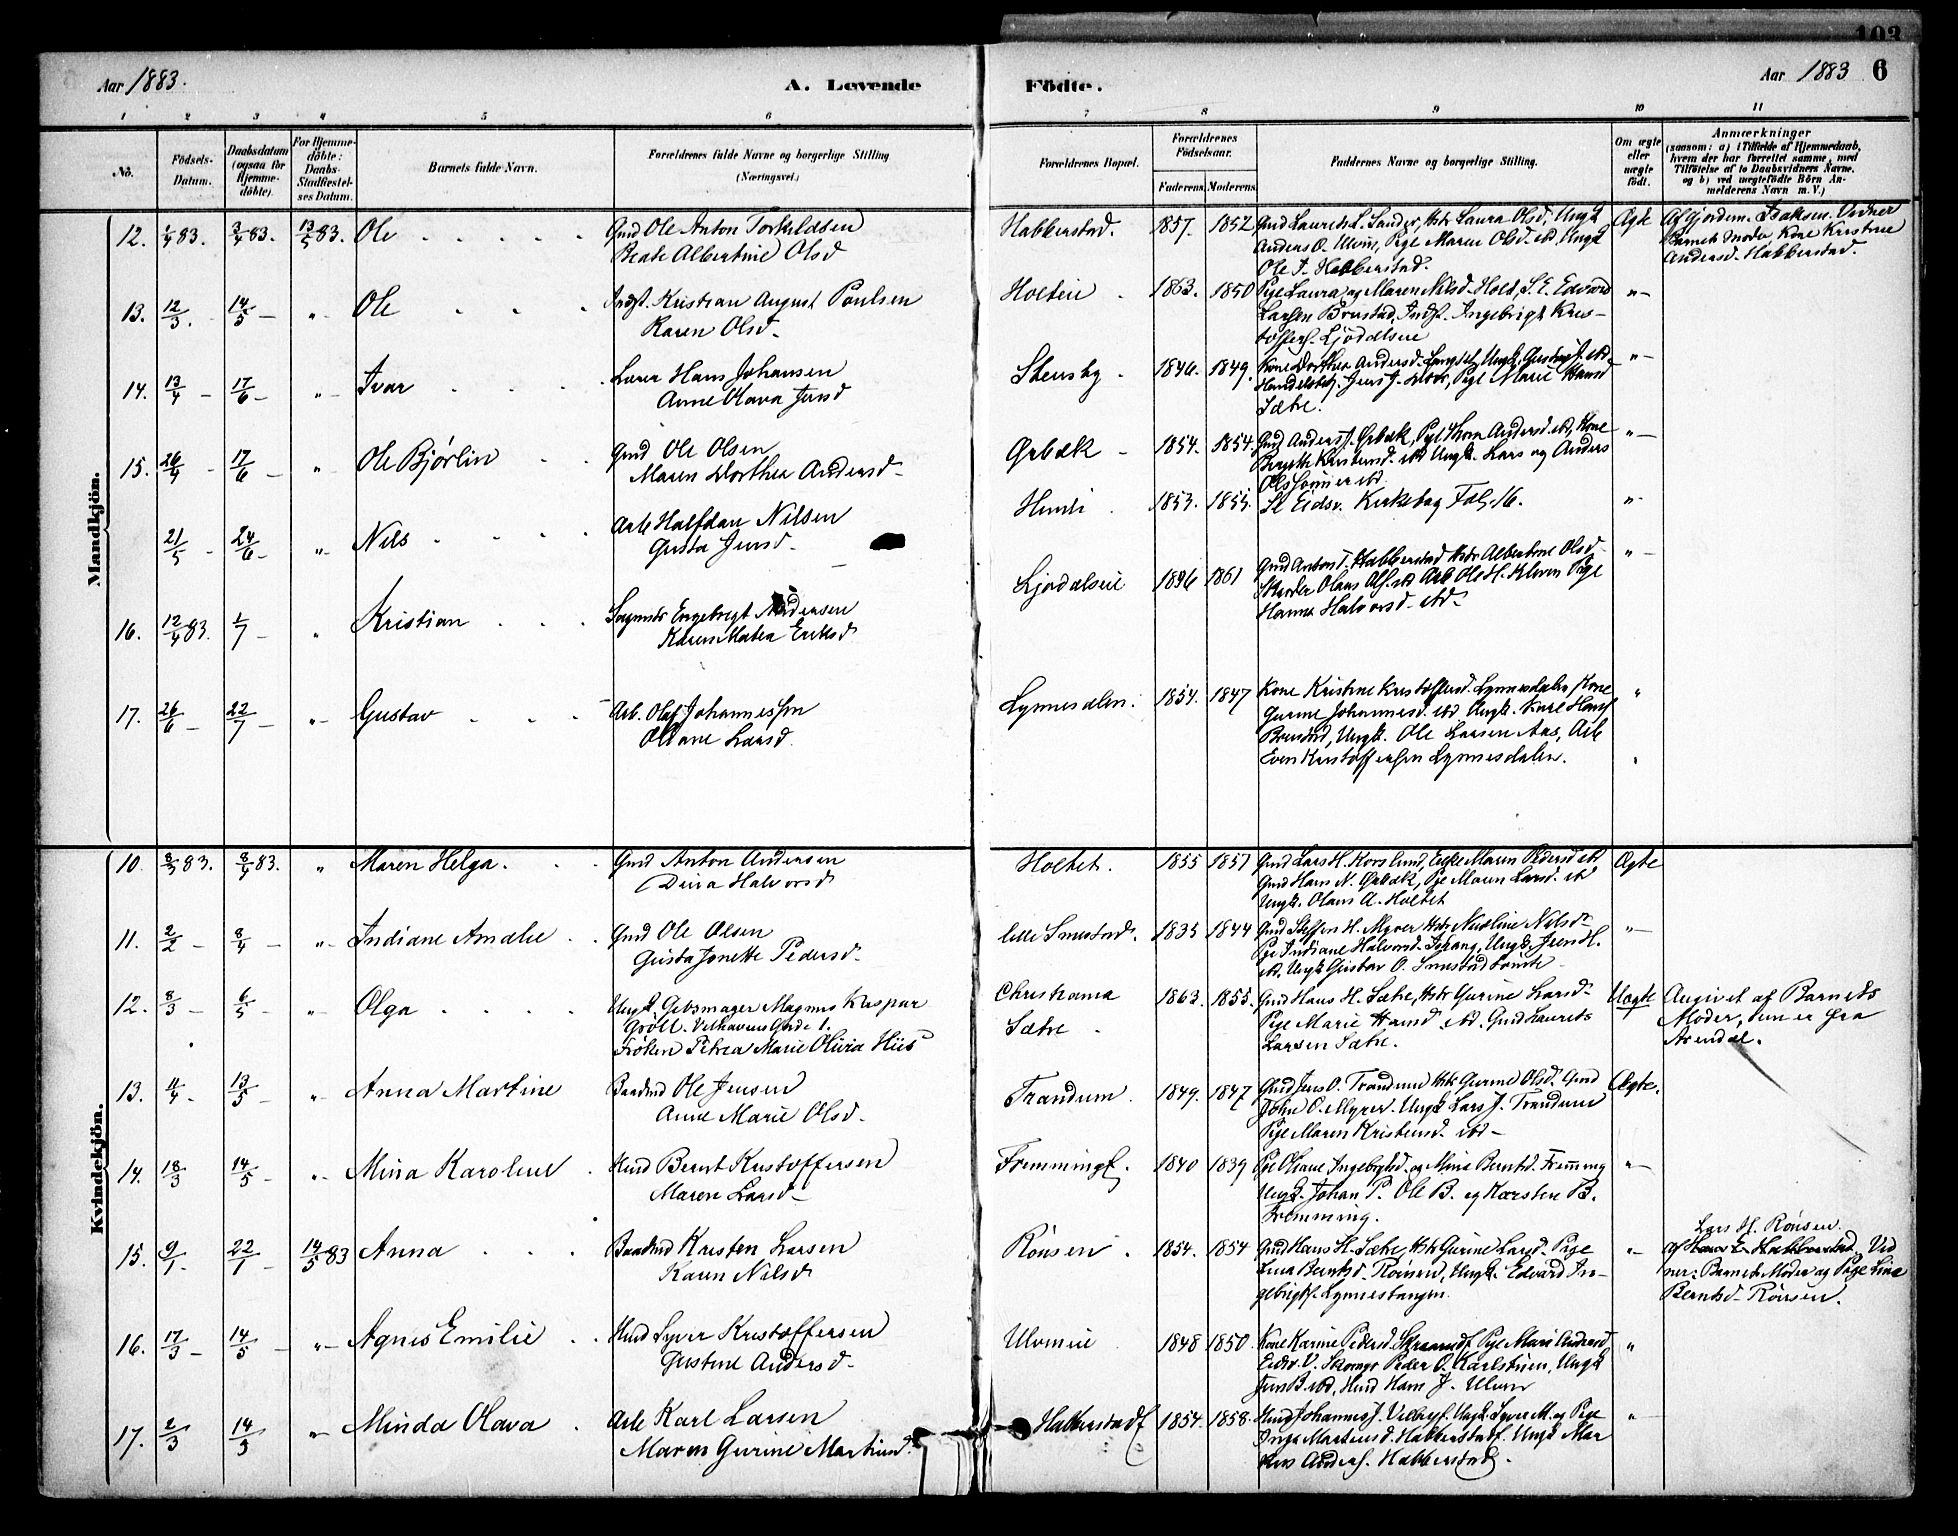 103
Aar 1883.
A. Levende
Födte.
Aar 1883
6
1 2 3 4 5 6 7 8 9 10 11
No.
Födsels-Datum.
Daabsdatum (ogsaa for Hjemme-döbte).
For Hjemme-döbte: Daabs-Stadfæstel-ses Datum.
Barnets fulde Navn.
Forældrenes fulde Navne og borgerlige Stilling
(Næringsvei.)
Forældrenes Bopæl.
Forældrenes Födselsaar.
Faderens. Moderens.
Faddernes Navne og borgerlige Stilling.
Om ægte eller uægte födt.
Anmærkninger
(saasom: a) i Tilfælde af Hjemmedaab, hvem der har forrettet samme, med Tilföielse af to Daabsvidners Navne, og b) ved uægtefödte Börn Anmelderens Navn m. V.)
Mandkjön.
12. 1/4 83. 3/4 83. 13/5 83. Ole
Gmd Ole Anton Torkildsen
Beate Albertine Olsd
Habberstad. 1857. 1852
Gmd Laurits L. Sander, Hstr Laura Olsd, Ungk
Anders O. Ulvin, Pige Maren Olsd. ibd, Ungk
Ole T. Habberstad.
Ægte
Af Gjordem. Isaksen. Vidner
Barnets Moder, Kone Kristine
Andersd. Habberstad.
13. 12/3. 14/5 — " Ole
Indst. Kristian August Paulsen
Karen Olsd.
Holteie 1863. 1850
Pige Laura og Maren Nilsd. Holt, S. E. Edvard
Larsen Brustad, Indst. Ingebrigt Kris-
toffers. Ljödalseie
" —
14. 13/4 — 17/6 — " Ivar
Lærer Hans Johansen
Anne Olava Jensd
Stensby 1846. 1849.
Kone Dorthea Andersd.
Handelsbetj. Jens J. Pige Marie Hansd
Sætre.
" —
15. 26/4 — 17/6 — " Ole Bjørlin
Gmd Ole Olsen
Maren Dorthea Andersd.
Ørbæk 1854. 1854.
Gmd Anders J. Ørbæk, Pige Thora Andersd. ibd, Kone
Bergitte Kristensd. ibd Ungk. Lars og Anders
Olssønner ibd.
" —
21/5 — 24/6 — " Nils
Arb Halfdan Nilsen
Gusta Jensd.
Hurdi 1853. 1855.
Se Eidsv. Kirkebog Fol. 16.
"
16. 12/4 83. 1/7 — " Kristian
Engebregt Andersen
Karen Mathea Eriksd
Ljødalseie 1836 1861
Gmd Anton T. Habberstad Hstr Albertine Olsd
Skræder Olaus Ols. ibd Arb Ole H. Kløven Pige
Hanna Halvorsd. ibd.
" —
17. 26/6 — 22/7 — " Gustav
Arb. Olaf Johannessen
Oliane Larsd.
Lynnesdalen. 1854. 1847
Kone Kristine Kristoffersd. Lynnesdalen Kone
Gurine Johannesd. ibd Ungk. Karl Hans
Brustad, Ungk. Ole Larsen Aas, Arb
Even Kristoffersen Lynnesdalen.
"
Kvindekjön.
10. 8/3 83. 8/4 83. " Maren Helga.
Gmd Anton Andersen
Dina Halvorsd
Holtet. 1855 1857
Gmd Lars H. Korslund, Enke Maren Pedersd ibd
Gmd Hans N. Ørbæk, Pige Maren Larsd. ibd
Ungk. Olaus A. Holtet
Ægte
11. 2/2 — 8/4 — " — Indiane Amalie
Gmd Ole Olsen
Gusta Jonette Pedersd.
lille Smestad. 1835 1844
Gmd Steffen H. Myrer Hstr Nicoline Nilsd
Pige Indiane Halvorsd. Ungk. Jens H.
ibd, Ungk Gustav O. Smestad
" —
12. 8/3 — 6/5 — " Olga
Ungk. Gibsmager Magnus Kaspar
Gröll. Velhavens Gade 1.
Frøken Petrea Marie Olivia Hiis
Christiania
Sætre 1863. 1855.
Gmd Hans H. Sætre, Hstr Gurine Larsd.
Pige Marie Hansd. ibd. Gmd Laurits
Larsen Sætre.
Uægte
Angivet af Barnets
Moder, som er fra
Arendal.
13. 11/4 — 13/5 — " Anna Martine
Baadmd Ole Jensen
Anne Marie Olsd.
Trandum. 1849. 1847
Gmd Jens O. Trandum Hstr Gurine Olsd. Gmd
John O. Myrer. Ungk Lars J. Trandum
Pige Maren Kristensd. ibd —
Ægte.
14. 18/3 14/5 — " Mina Karoline
Hmd Bernt Kristoffersen
Maren Larsd —
Fremming f. 1840 1839
Pige Oliane Ingebrigtsd. og Mina Berntsd. Fremming
Ungk. Johan P. Ole B. og Karsten B.
Fremming.
" —
15. 9/1. 22/1 — 14/5 83 Anna
Baadmd Kristen Larsen
Karen Nilsd
Rönsen 1854. 1854
Gmd Hans H. Sætre, Hstr Gurine Larsd. Pige
Lina Berntsd. Rönsen, Ungk. Edvard In-
gebrigts. Lynnestangen.
" —
Lars H. Rönsen.
Af Habberstad. Vid
ner: Barnets Moder og Pige Lina
Berntsd. Rönsen.
16. 17/3 — 14/5 — " — Agnes Emilie
Hmd Syver Kristoffersen
Gustine Andersd.
Ulvineie 1848 1850.
Kone Karine Pedersd. Pige Mari Andersd
Eidsv. V. Peder O. Karlstuen, Ungk
Jens B. ibd, Hmd Hans J. Ulvin
"
17. 2/3 14/5 " Minda Olava
Arb Karl Larsen
Maren Gurine Martinsd.
Habberstad f. 1854. 1858.
Hmd Johannes J. Velbyf. Ungk. Syver M. og Pige
Inga Martinsd. Habberstad f. Ungk Mar
kus Anders. Habberstad f.
" —